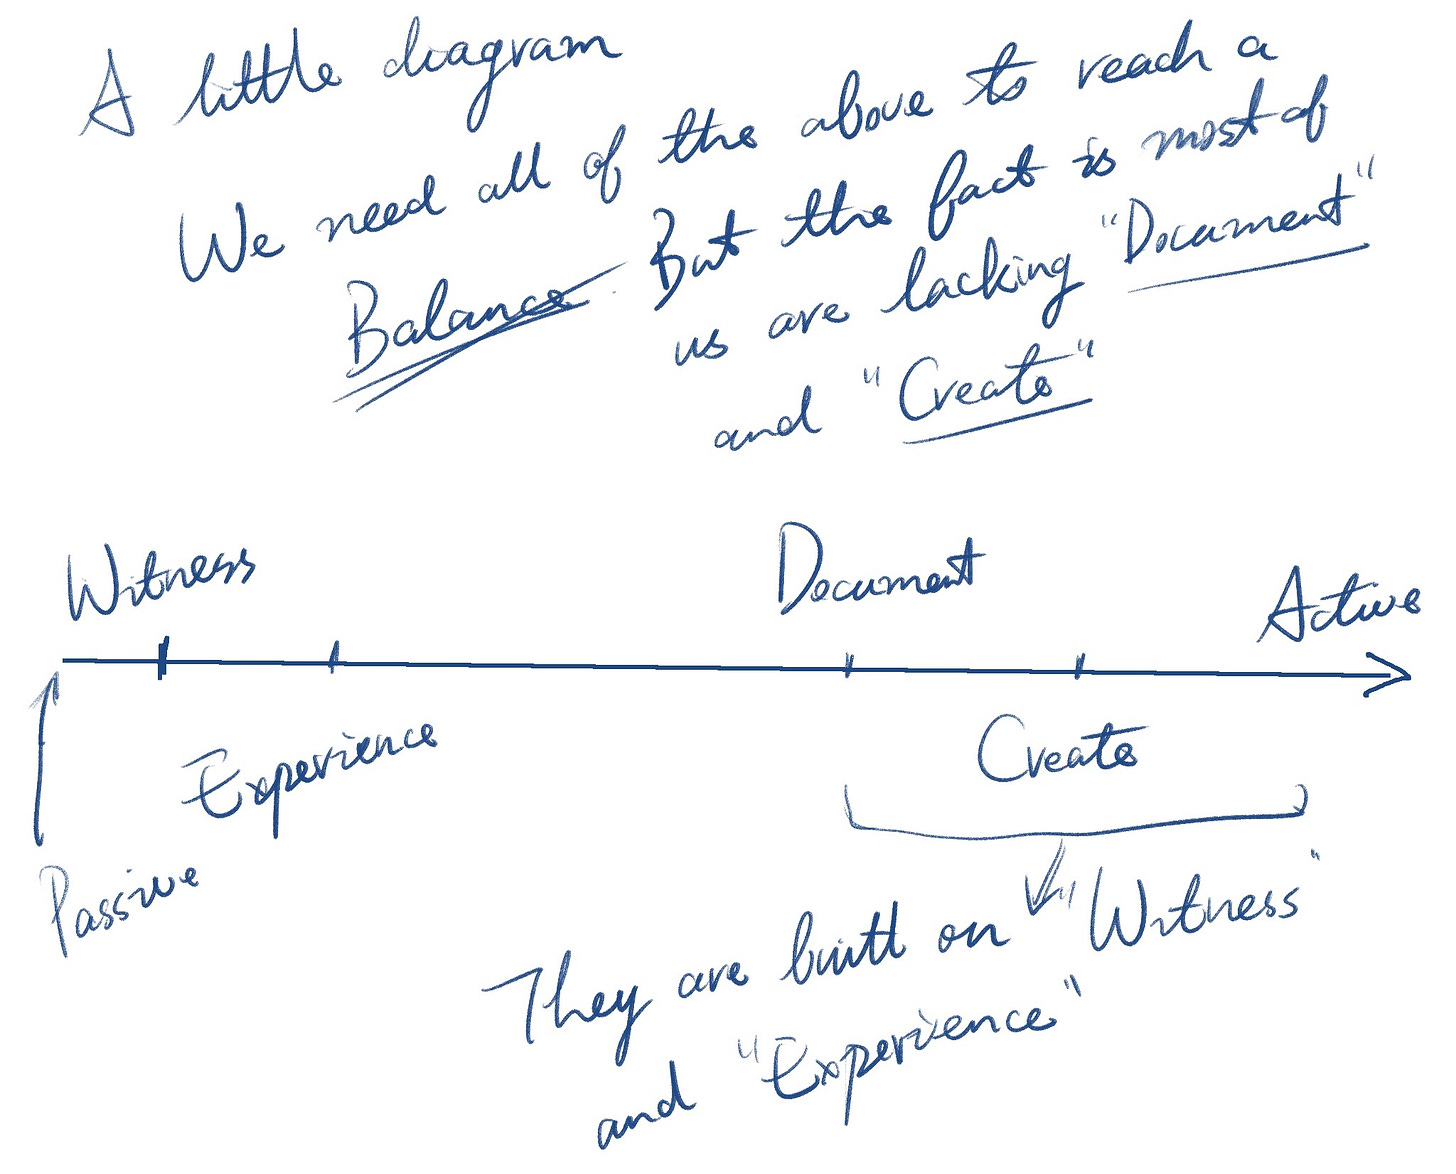 A little diagram
We need all of the above to reach a
Balance. But the fact is most of
us are lacking "Document"
and "Create"
Witness
Document
Active
Experience
Create
Passive
They are built on "Witness"
and "Experience"